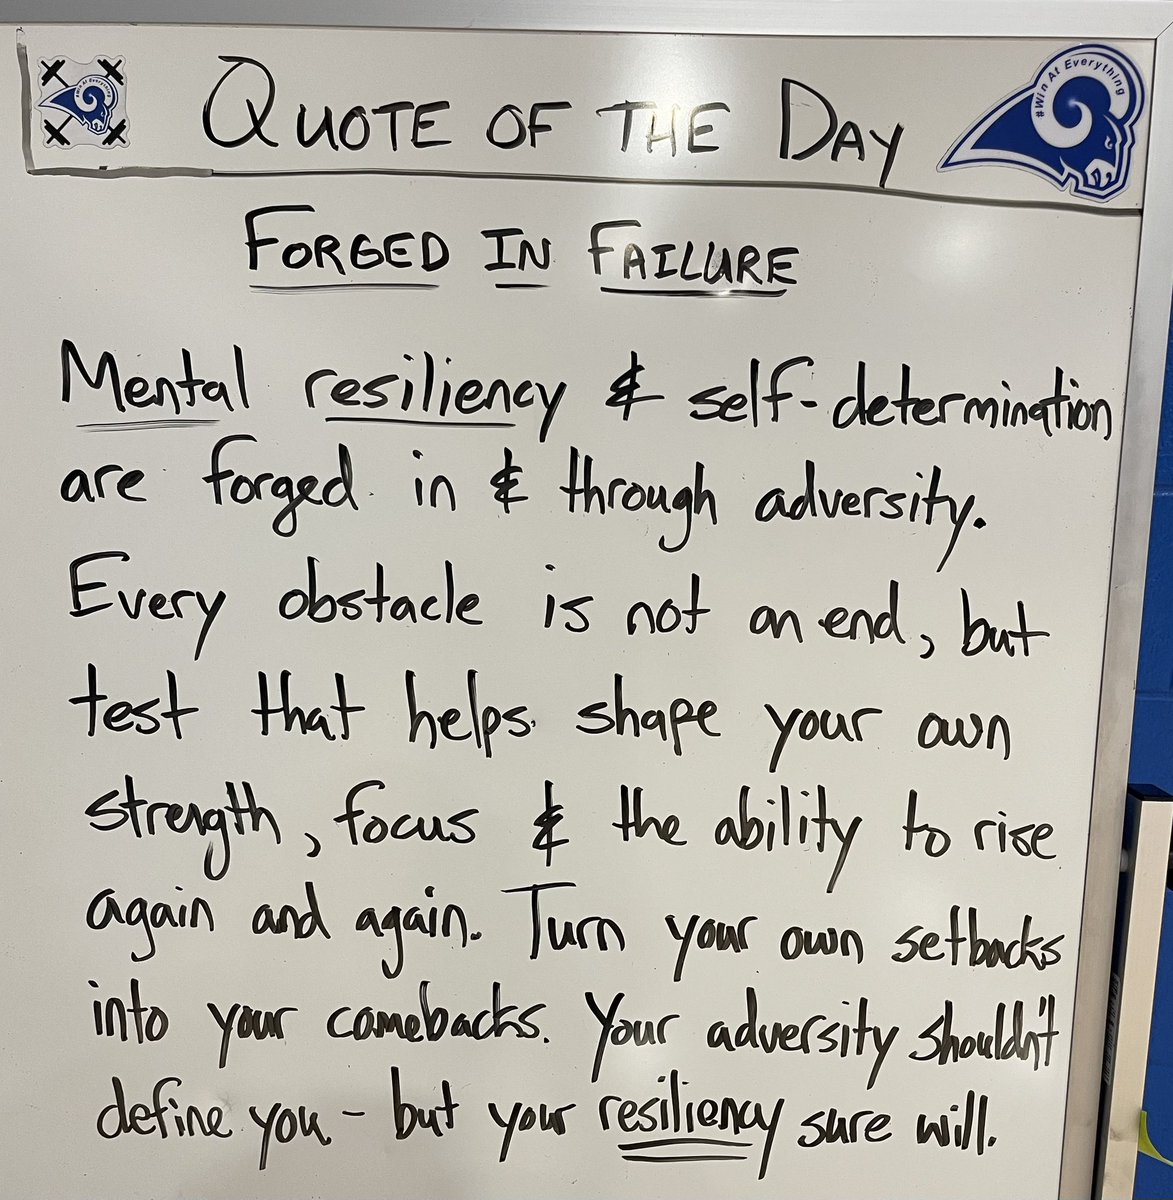 #Win At Everything
QUOTE OF THE DAY
#Win At Everything
FORGED IN FAILURE
Mental resiliency & self-determination
are forged in & through adversity.
Every obstacle is not an end, but
test that helps shape your own
strength, focus & the ability to rise
again and again. Turn your own setbacks
into your comebacks. Your adversity shouldn't
define you - but your resiliency sure will.